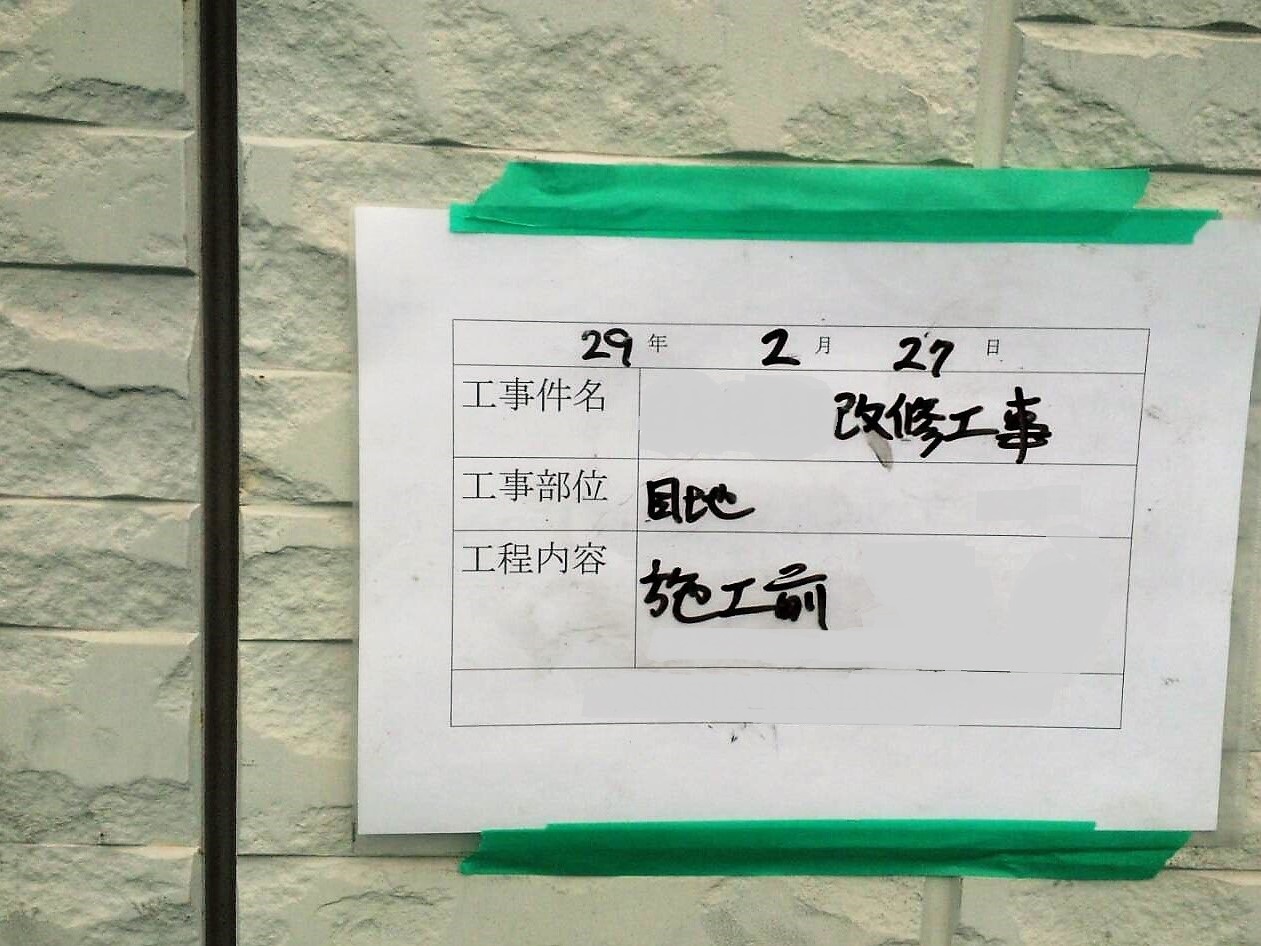 29年 2月 27日
工事件名 改修工事
工事部位 目地
工程内容 施工前